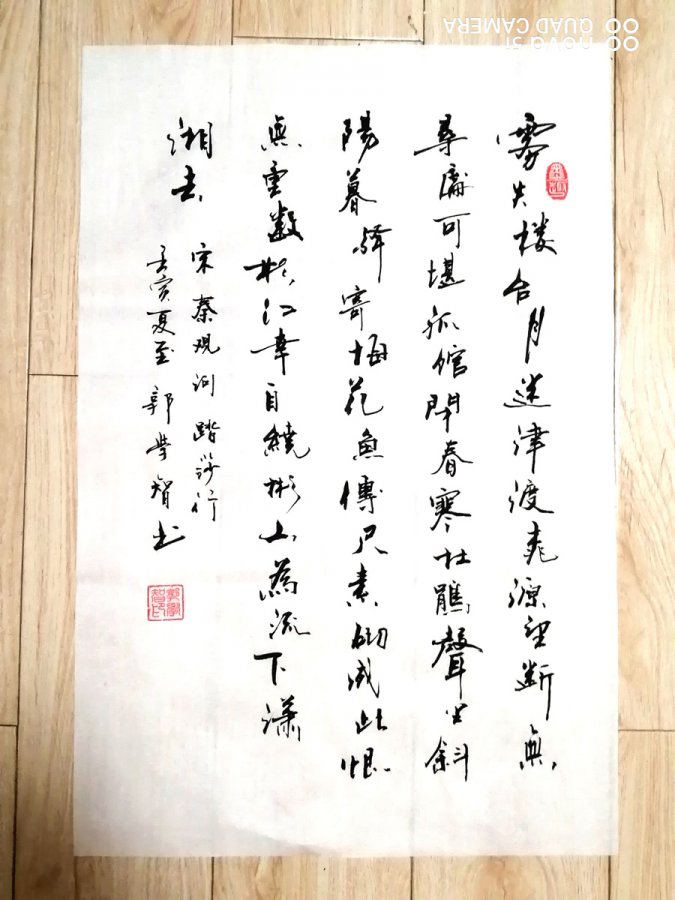 雾失楼台月迷津渡桃源望断無
尋處可堪孤館閉春寒杜鵑聲里斜
陽暮驛寄梅花魚傳尺素砌成此恨
無重數郴江幸自繞郴山為流下瀟
湘去
宋秦观词踏莎行
壬寅夏至郭學智书
郭學智印
nova
QUAD CAMERA